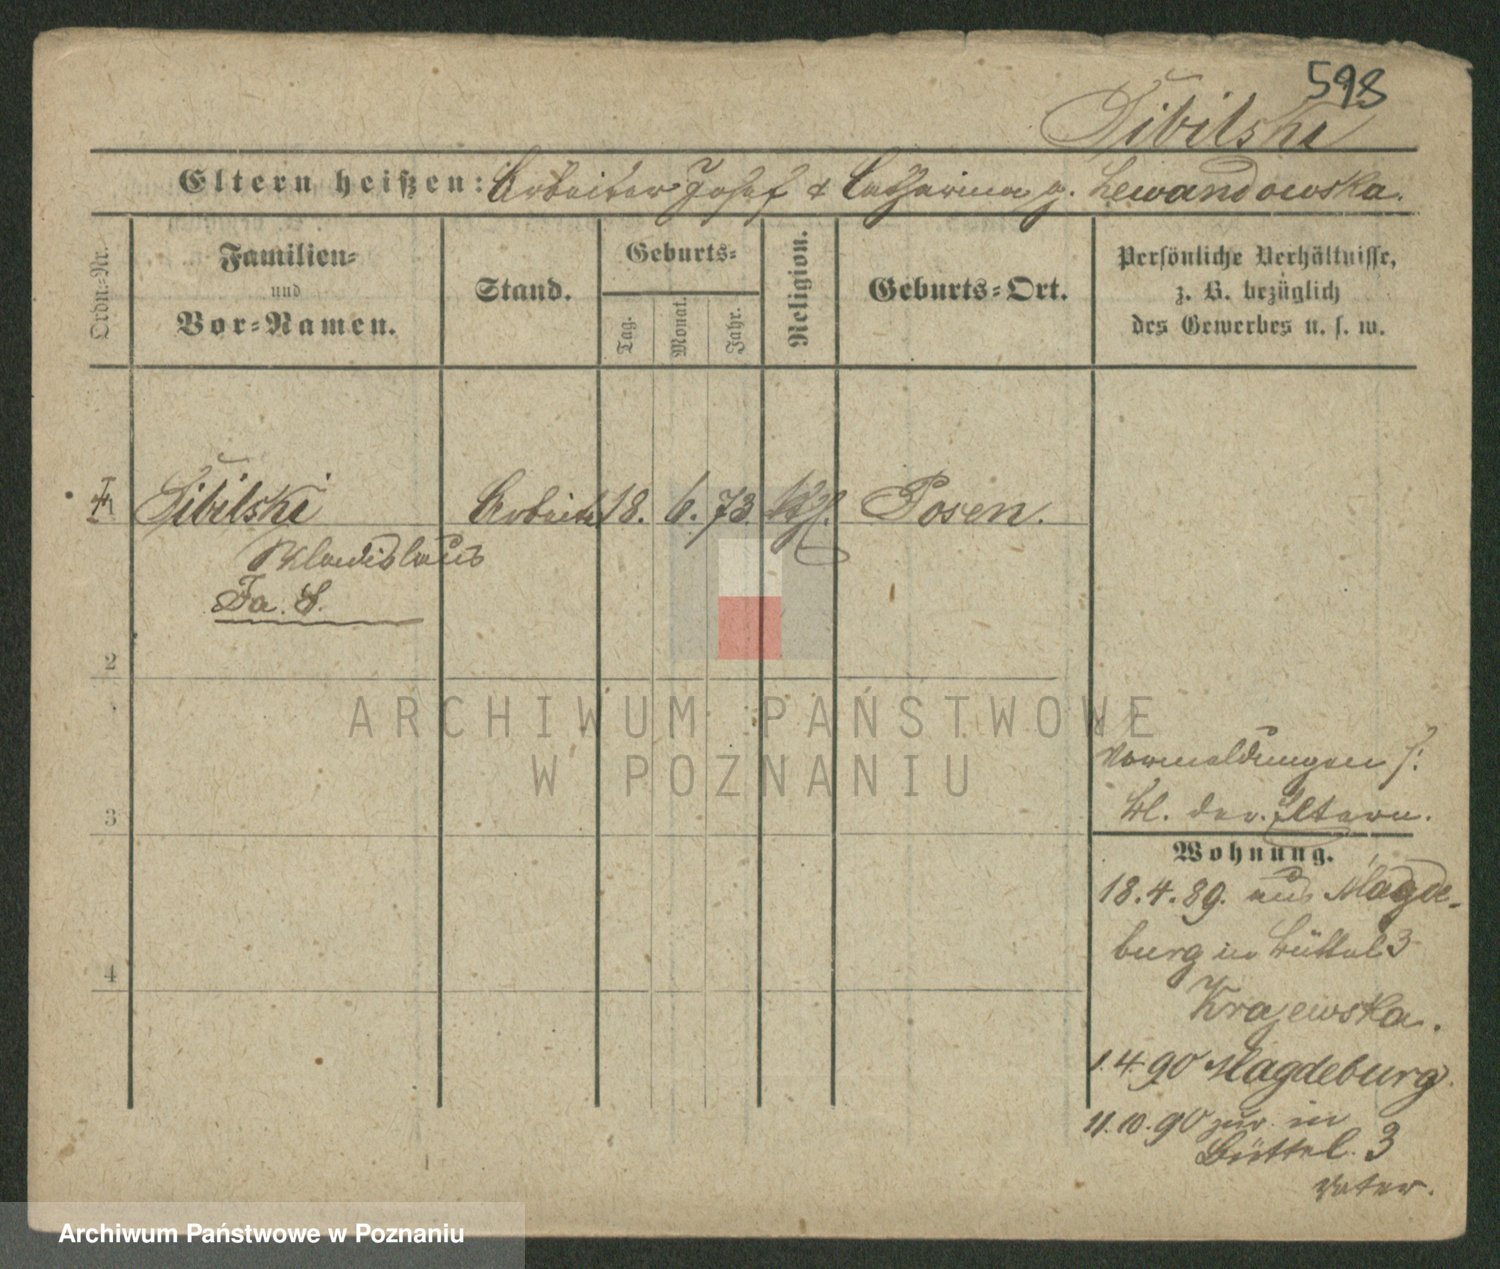 598
Tibilski
Eltern heißen: Arbeiter Josef & Catharina g. Lewandowska.
Ordn.-Nr.
Familien-
und
Vor-Namen.
Stand.
Geburts-
Tag.
Monat.
Jahr.
Religion.
Geburts-Ort.
Persönliche Verhältnisse,
z. B. bezüglich
des Gewerbes u. s. w.
1 Tibilski Arbeiter 18. 6. 73. kth. Posen.
Wladislaus
Fa. S.
2
ARCHIWUM PAŃSTWOWE
W POZNANIU
Vormeldungen s:
Bl. der Eltern.
3
Wohnung.
18.4.89. aus Magde-
burg in Büttel 3
Krajewska.
4
1.4.90 Magdeburg.
11.10.90 zur. in
Büttel. 3
Vater.
Archiwum Państwowe w Poznaniu